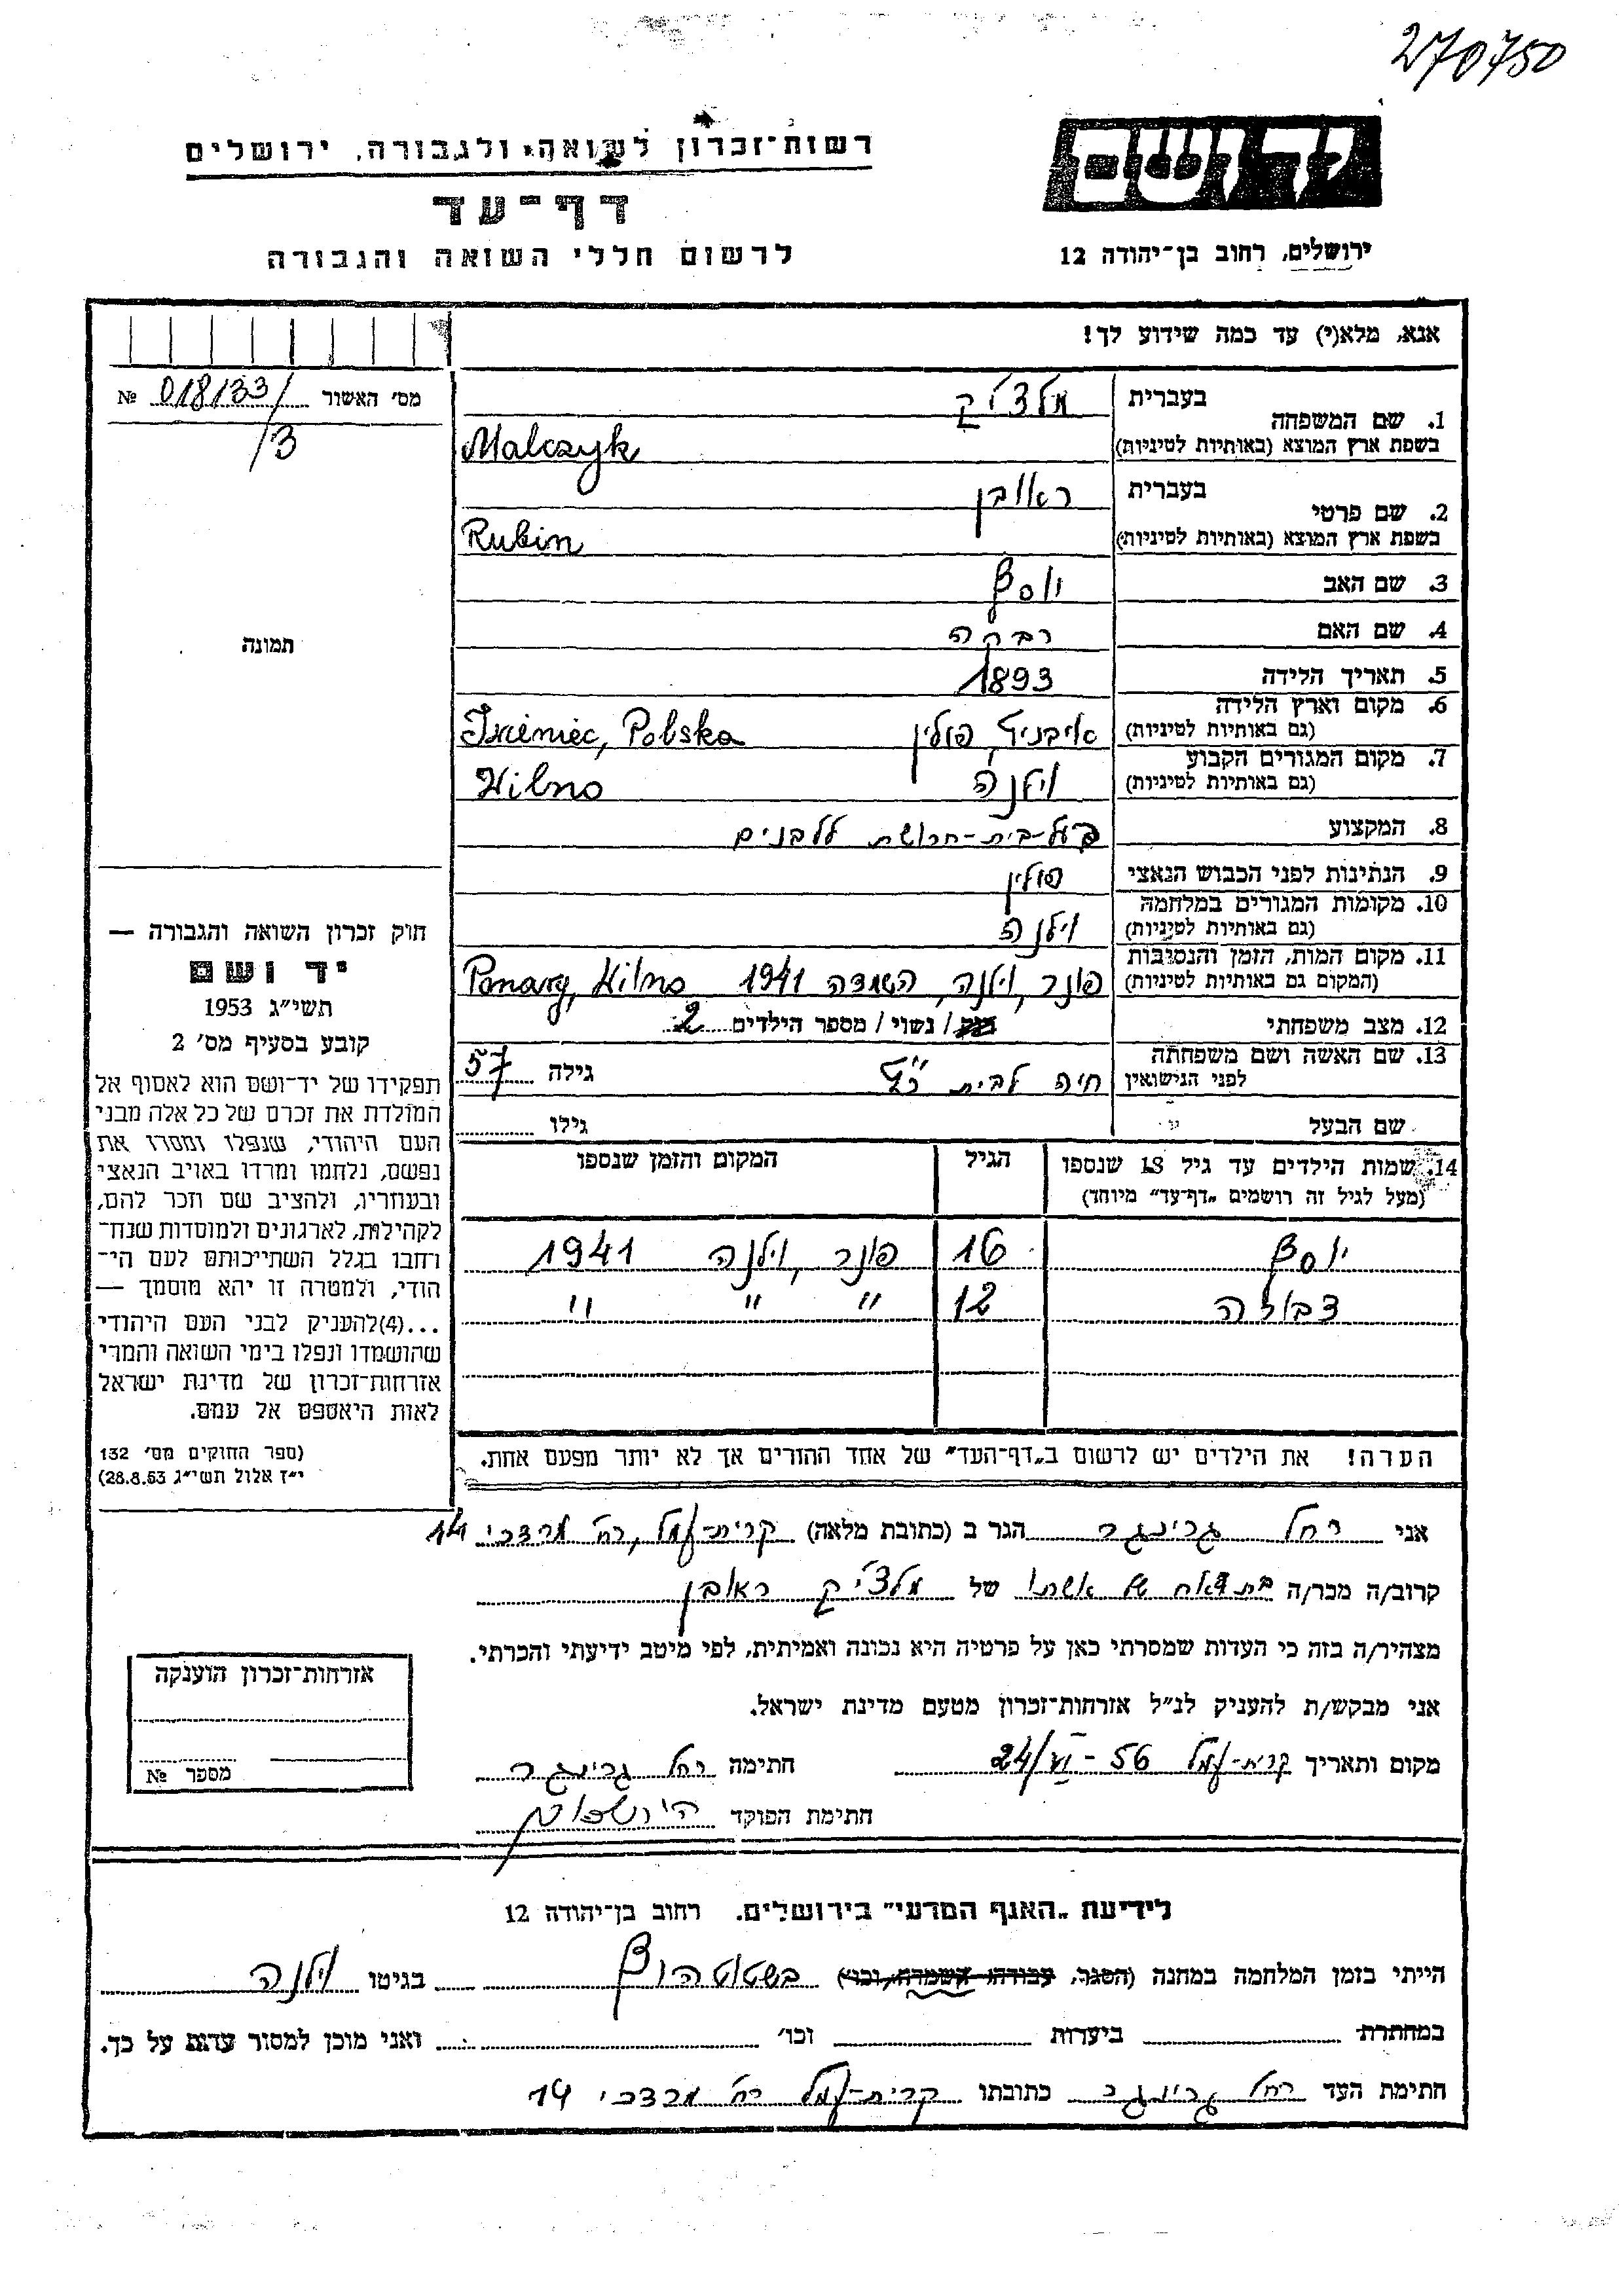 270750
יד ושם
רשות־זכרון לשואה ולגבורה, ירושלים
דף־עד
לרשום חללי השואה והגבורה
ירושלים, רחוב בן־יהודה 12
אנא, מלא(י) עד כמה שידוע לך!
מס׳ האשור 018133/ №
/3
1. שם המשפחה
בעברית מלצ'יק
בשפת ארץ המוצא (באותיות לטיניות) Malczyk
2. שם פרטי
בעברית ראובן
בשפת ארץ המוצא (באותיות לטיניות) Rubin
3. שם האב יוסף
4. שם האם רבקה
תמונה
5. תאריך הלידה 1893
6. מקום וארץ הלידה
(גם באותיות לטיניות) איבניץ, פולין Iwieniec, Polska
7. מקום המגורים הקבוע
(גם באותיות לטיניות) וילנה Wilno
8. המקצוע בעל-בית-חרושת ללבנים
9. הנתינות לפני הכבוש הנאצי פולין
10. מקומות המגורים במלחמה
(גם באותיות לטיניות) וילנה
11. מקום המות, הזמן והנסיבות
(המקום גם באותיות לטיניות) פונר, וילנה, השמדה 1941 Ponary, Wilno
12. מצב משפחתי רווק / נשוי / מספר הילדים 2
13. שם האשה ושם משפחתה
לפני הנישואין חיה לבית כ"ץ גילה 57
שם הבעל גילו
14. שמות הילדים עד גיל 18 שנספו הגיל המקום והזמן שנספו
(מעל לגיל זה רושמים „דף־עד” מיוחד)
יוסף 16 פונר, וילנה 1941
דבורה 12 " " "
הערה! את הילדים יש לרשום ב„דף־העד” של אחד ההורים אך לא יותר מפעם אחת.
חוק זכרון השואה והגבורה —
יד ושם
תשי״ג 1953
קובע בסעיף מס׳ 2
תפקידו של יד־ושם הוא לאסוף אל
המולדת את זכרם של כל אלה מבני
העם היהודי, שנפלו ומסרו את
נפשם, נלחמו ומרדו באויב הנאצי
ובעוזריו, ולהציב שם וזכר להם,
לקהילות, לארגונים ולמוסדות שנח־
רחבו בגלל השתייכותם לעם הי־
הודי, ולמטרה זו יהא מוסמך —
...(4)להעניק לבני העם היהודי
שהושמדו ונפלו בימי השואה והמרי
אזרחות־זכרון של מדינת ישראל
לאות היאספם אל עמם.
(ספר החוקים מס׳ 132
י״ז אלול תשי״ג 28.8.53)
אני רחל גרינגר הגר ב (כתובת מלאה) קרית-עמל, רח' מרדכי 14
קרוב/ה מכר/ה בת דאח של אשתו של מלצ'יק ראובן
מצהיר/ה בזה כי העדות שמסרתי כאן על פרטיה היא נכונה ואמיתית, לפי מיטב ידיעתי והכרתי.
אני מבקש/ת להעניק לנ״ל אזרחות־זכרון מטעם מדינת ישראל.
מקום ותאריך קרית-עמל 24/VI-56 חתימה רחל גרינגר
חתימת הפוקד
אזרחות־זכרון הוענקה
מספר №
לידיעת „האגף המדעי” בירושלים, רחוב בן־יהודה 12
הייתי בזמן המלחמה במחנה (הסגר, עבודה, השמדה, וכו׳) בשטוטהוף בגיטו וילנה
במחתרת ביערות וכו׳ ואני מוכן למסור עדות על כך.
חתימת העד רחל גרינגר כתובתו קרית-עמל רח' מרדכי 14